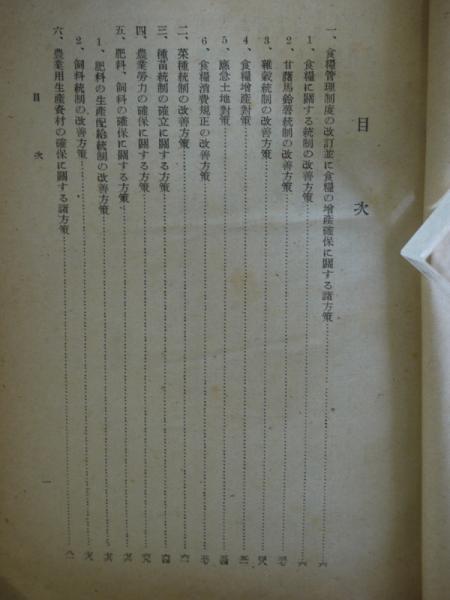 目次
一、食糧管理制度の改訂並に食糧の增産確保に關する諸方策
1、食糧に關する統制の改善方策
2、甘藷馬鈴薯統制の改善方策
3、雜穀統制の改善方策
4、食糧增産對策
5、應急土地對策
6、食糧消費規正の改善方策
二、菜種統制の改善方策
三、種苗統制の確立に關する方策
四、農業勞力の確保に關する方策
五、肥料、飼料の確保に關する方策
1、肥料の生産配給統制の改善方策
2、飼料統制の改善方策
六、農業用生産資材の確保に關する諸方策
目次
一